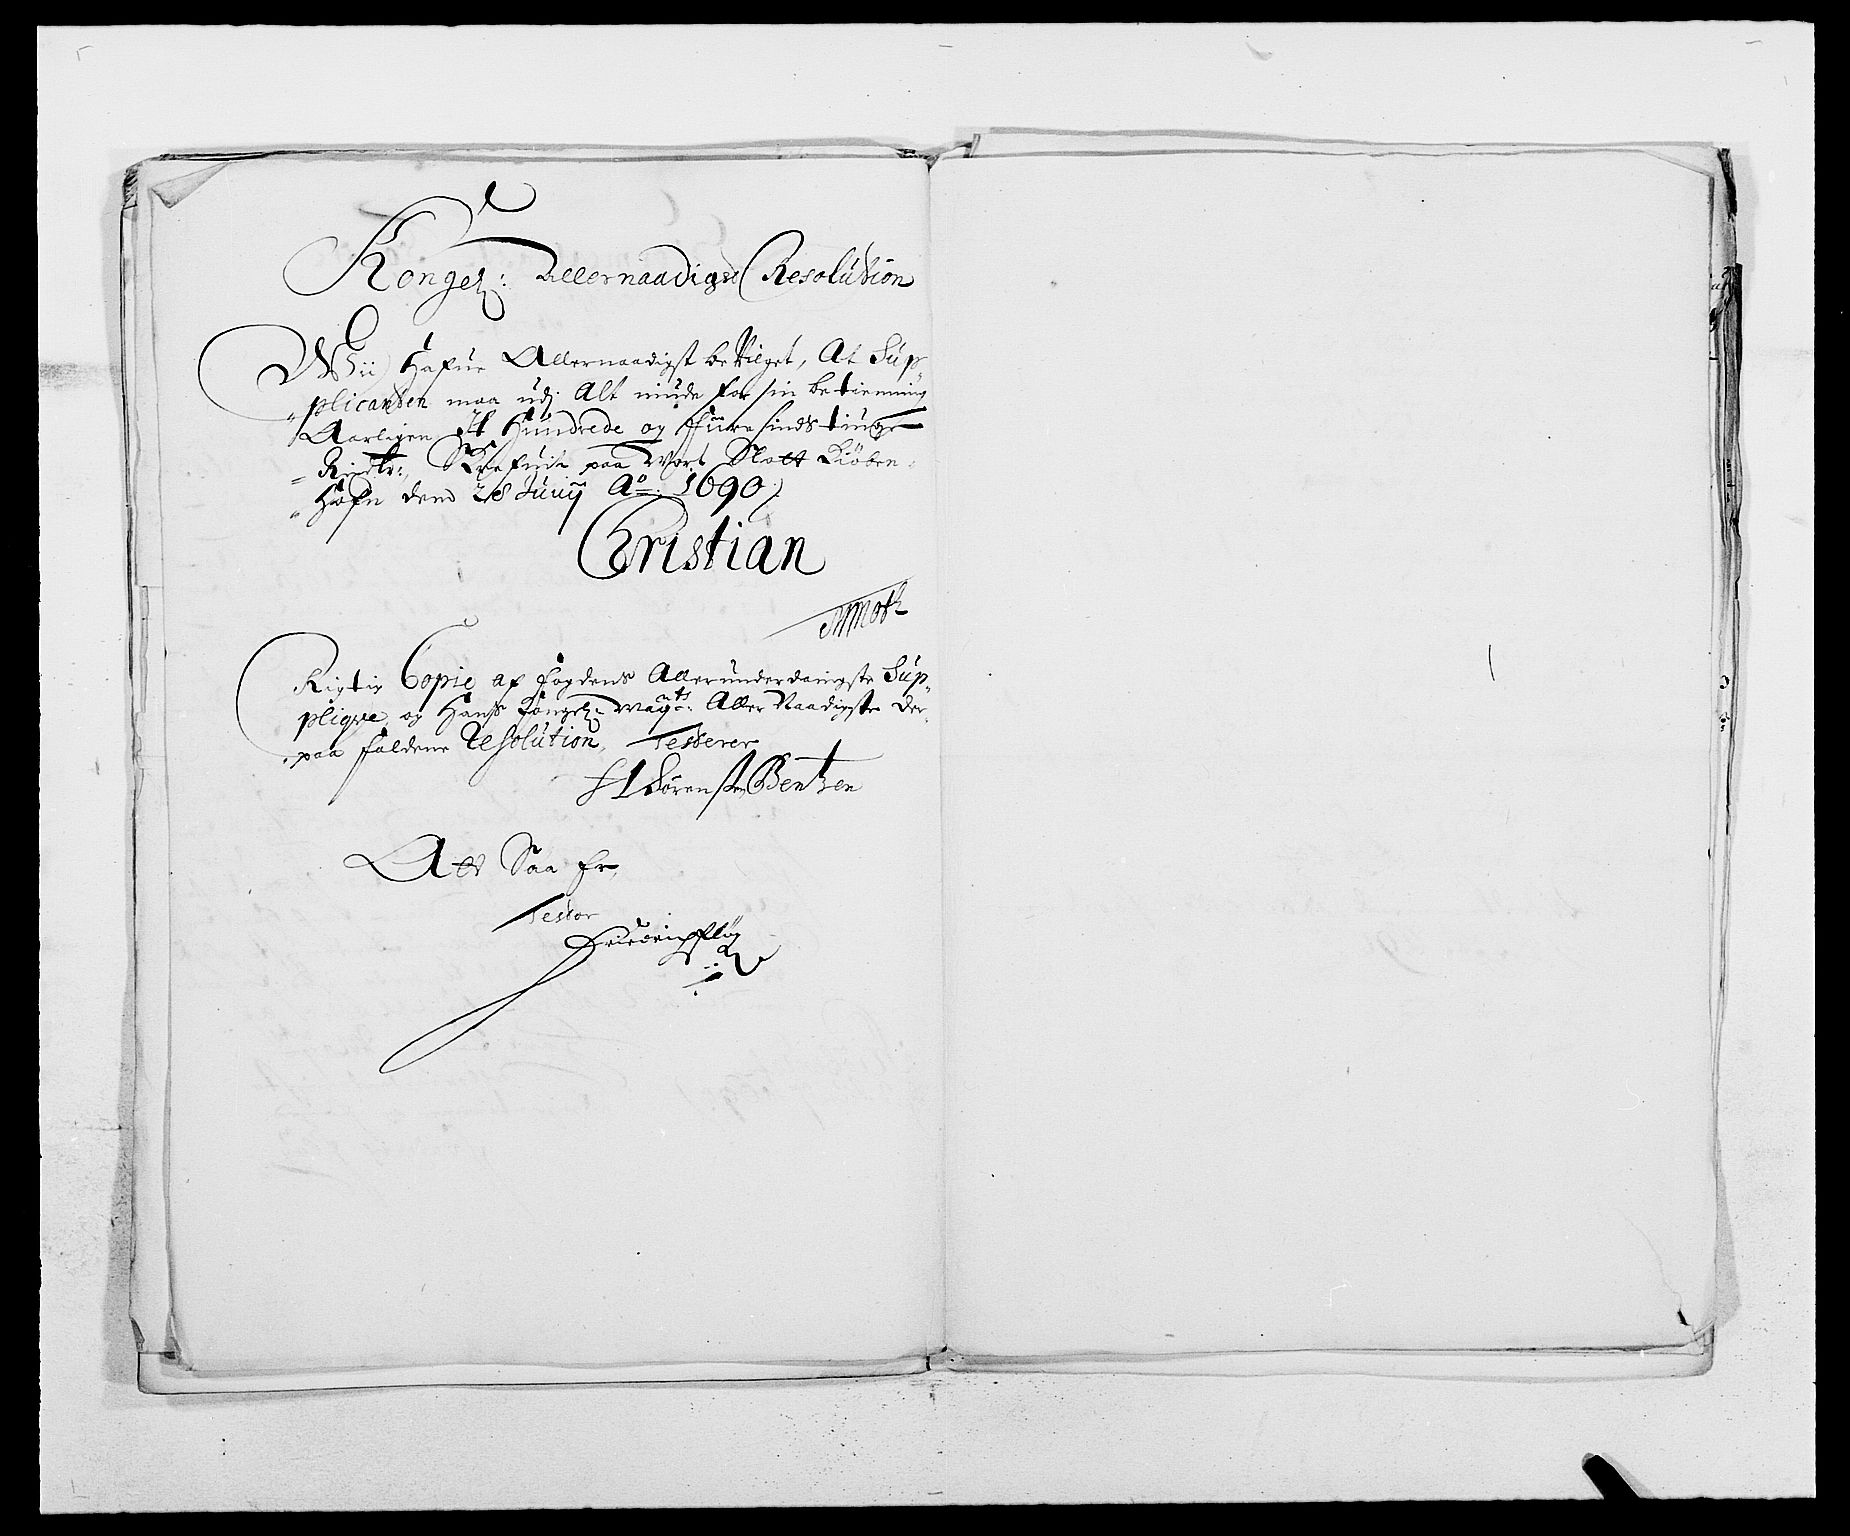 Kongel: Allernaadigst Resolution
Wii Hafue Allernaadigst beVilget, At Sup„
„plicanten maa udj Alt niude for sin betienning
Aarligen Et Hundrede og fiiresindstiuge
„Rixdlr: Skrefuit paa Vort Slott Kiøben„
„Hafn den 28 Junij Ao: 1690
Christian
MMoth
Rigtig Copie af fogdens Allerunderdanigste Sup„
plique, og Hans Kongel: Mayts: Aller Naadigste Der„
„paa faldene Resolution, Testerer
Sørensen Bentzen
Att Saa Er,
Tester
Friedrich Pflüg